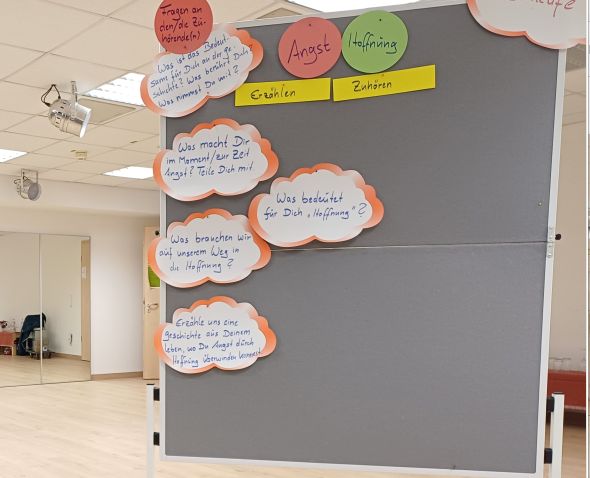 Fragen an
den/die Zu-
hörende(n)
Was ist das Bedeut-
same für Dich an der Ge-
schichte? Was berührt Dich?
Was nimmst Du mit?
Angst
Hoffnung
Erzählen
Zuhören
Was macht Dir
im Moment/zur Zeit
Angst? Teile Dich mit.
Was bedeutet
für Dich „Hoffnung"?
Was brauchen wir
auf unserem Weg in
die Hoffnung?
Erzähle uns eine
Geschichte aus Deinem
Leben, wo Du Angst durch
Hoffnung überwinden konntest